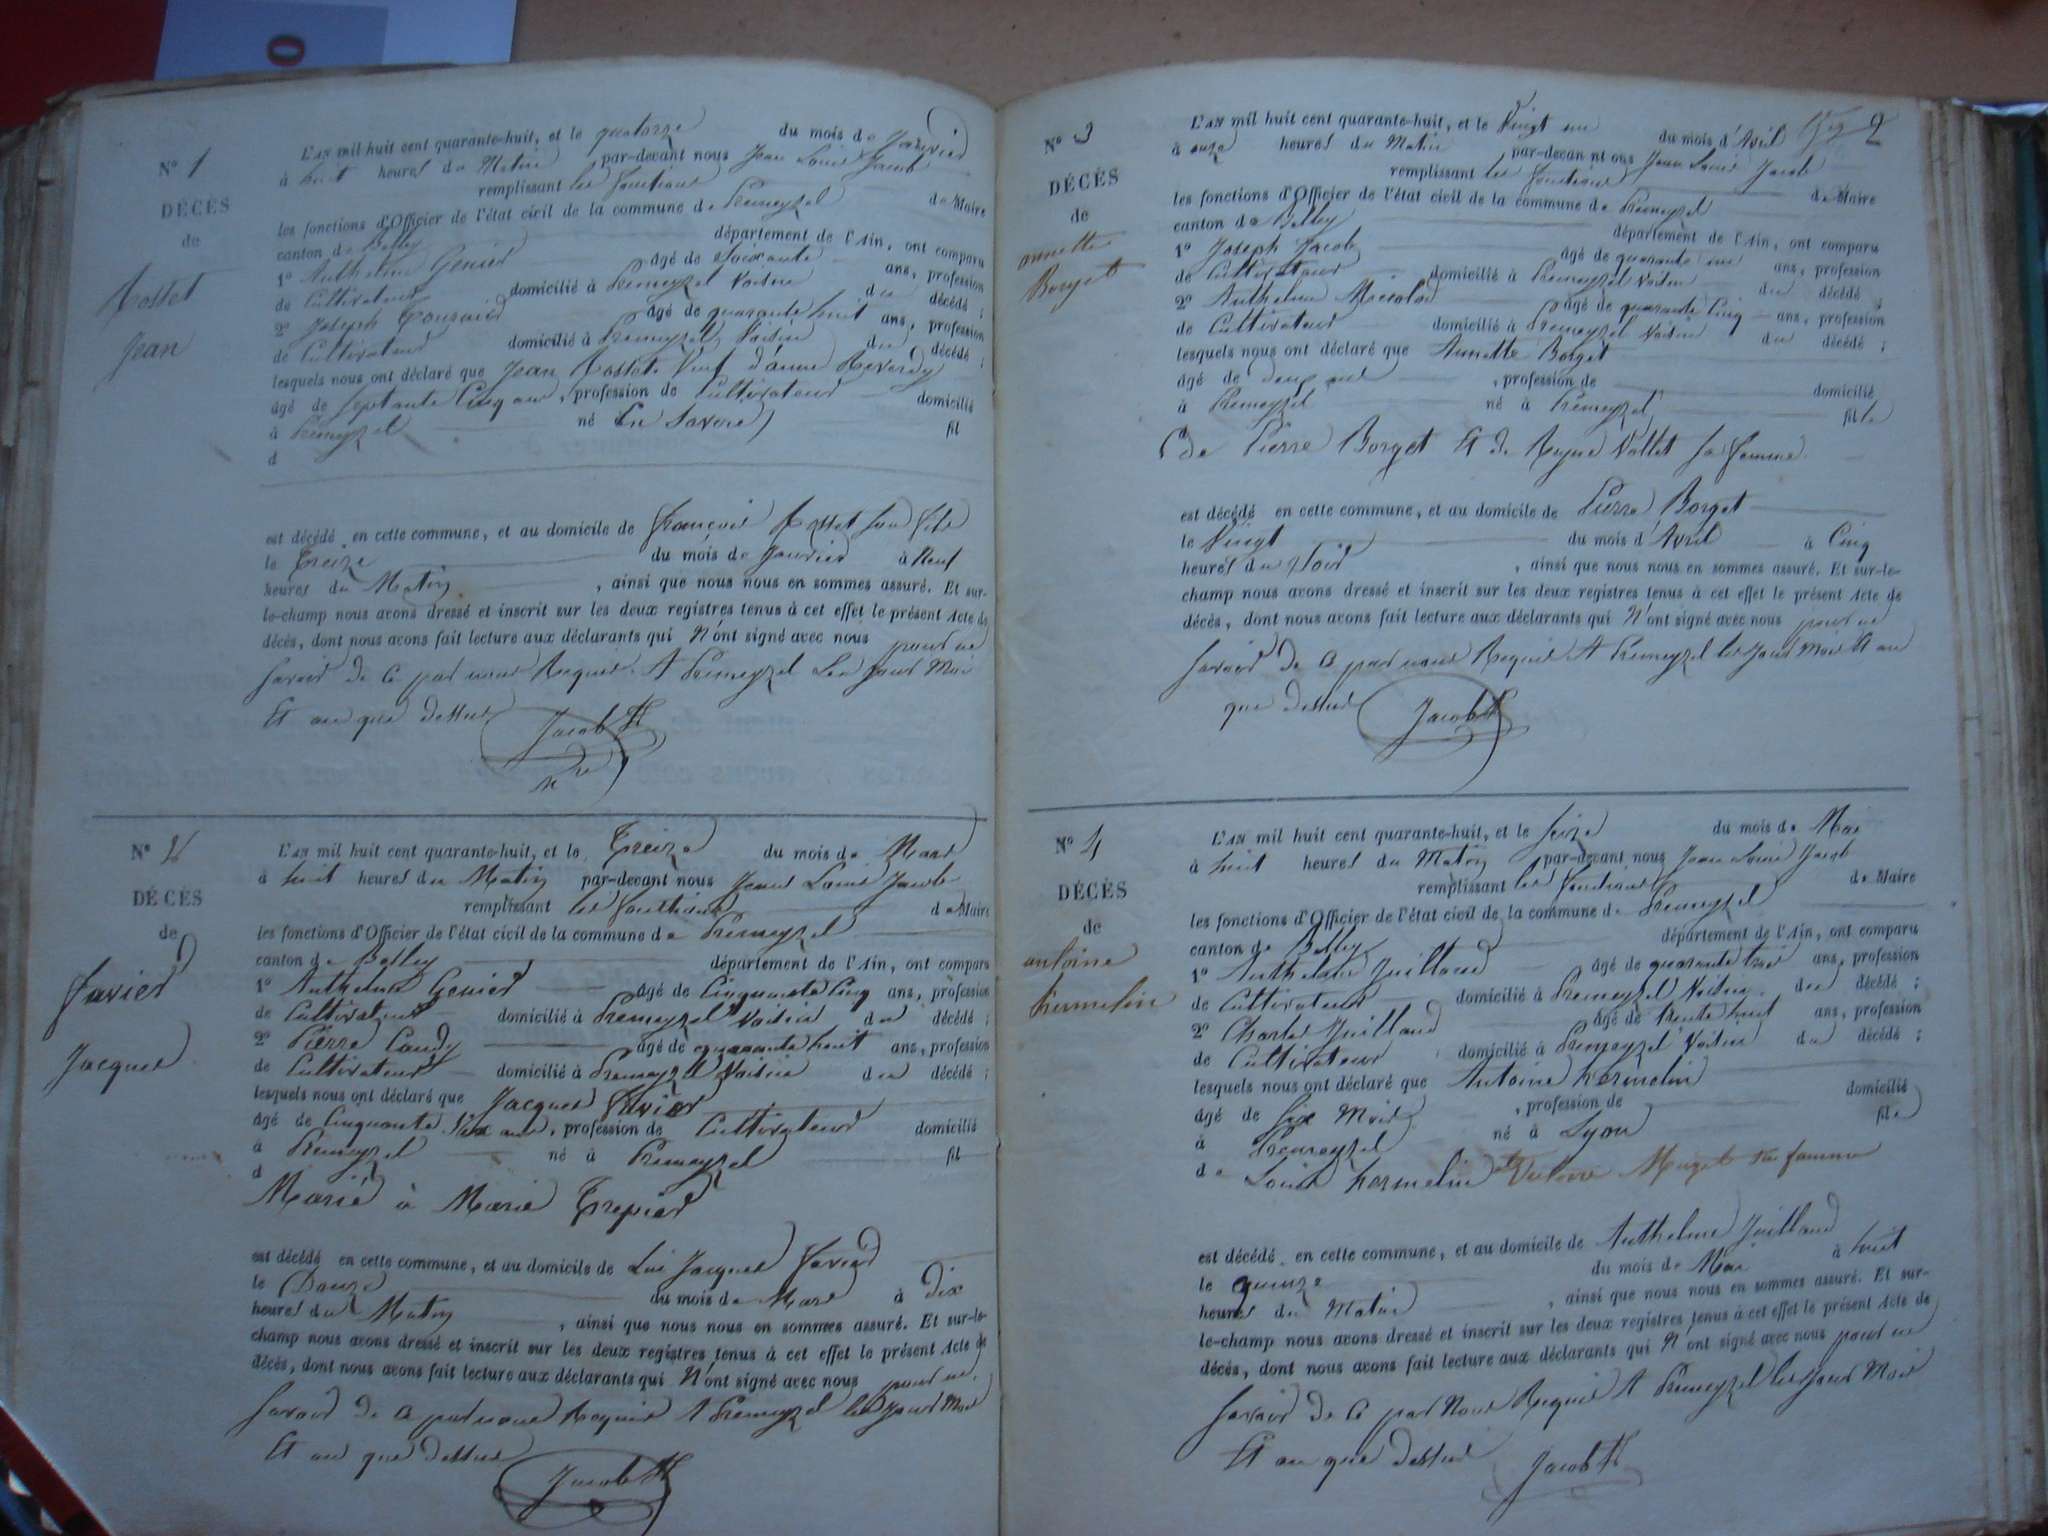 N° 1
DÉCÈS
de
Rosset
Jean
L'AN mil huit cent quarante-huit, et le quatorze du mois de Janvier
à huit heures du Matin par-devant nous Jean Louis Jacob
remplissant les fonctions de Maire
les fonctions d'Officier de l'état civil de la commune de Prémeyzel
canton de Belley département de l'Ain, ont comparu
1° Anthelme Genier âgé de Soixante ans, profession
de Cultivateur domicilié à Prémeyzel Voisin du décédé ;
2° Joseph âgé de quarante huit ans, profession
de Cultivateur domicilié à Prémeyzel Voisin du décédé ;
lesquels nous ont déclaré que Jean Rosset Veuf d'anne Reverdy
âgé de Septante Cinq ans, profession de Cultivateur domicilié
à Prémeyzel né En Savoie fil
d
est décédé en cette commune, et au domicile de françois Rosset Son fils
le Treize du mois de Janvier à Neuf
heures du Matin, ainsi que nous nous en sommes assuré. Et sur-
le-champ nous avons dressé et inscrit sur les deux registres tenus à cet effet le présent Acte de
décès, dont nous avons fait lecture aux déclarants qui N'ont signé avec nous pour ne
Savoir de ce par nous Requis A Prémeyzel Les Jour Moi
Et an que dessus Jacob
N° 2
DÉCÈS
de
favier
Jacques
L'AN mil huit cent quarante-huit, et le Treize du mois de Mars
à huit heures du Matin par-devant nous Jean Louis Jacob
remplissant les fonctions de Maire
les fonctions d'Officier de l'état civil de la commune de Prémeyzel
canton de Belley département de l'Ain, ont comparu
1° Anthelme Genier âgé de Cinquante Cinq ans, profession
de Cultivateur domicilié à Prémeyzel Voisin du décédé ;
2° Pierre Caudy âgé de quarante huit ans, profession
de Cultivateur domicilié à Prémeyzel Voisin du décédé ;
lesquels nous ont déclaré que Jacques Favier
âgé de Cinquante ans, profession de Cultivateur domicilié
à Prémeyzel né à Prémeyzel fil
d
Marié à Marie Trepier
est décédé en cette commune, et au domicile de Lui Jacques favier
le Douze du mois de Mars à Dix
heures du Matin, ainsi que nous nous en sommes assuré. Et sur-le-
champ nous avons dressé et inscrit sur les deux registres tenus à cet effet le présent Acte de
décès, dont nous avons fait lecture aux déclarants qui N'ont signé avec nous pour ne
Savoir de ce par nous Requis A Prémeyzel les Jour Moi
Et an que dessus
Jacob
2
N° 3
DÉCÈS
de
annette
Borget
L'AN mil huit cent quarante-huit, et le Vingt un du mois d'Avril
à onze heures du Matin par-devan nt ous Jean Louis Jacob
remplissant les fonctions de Maire
les fonctions d'Officier de l'état civil de la commune de Prémeyzel
canton de Belley département de l'Ain, ont comparu
1° Joseph Jacob âgé de quarante un ans, profession
de Cultivateur domicilié à Prémeyzel Voisin du décédé ;
2° Anthelme âgé de quarante Cinq ans, profession
de Cultivateur domicilié à Prémeyzel Voisin du décédé ;
lesquels nous ont déclaré que Annette Borget
âgé de deux ans, profession de domicilié
à Prémeyzel né à Prémeyzel fille
de Pierre Borget Et de Reyne Vallet Sa femme
est décédé en cette commune, et au domicile de Pierre Borget
le Vingt du mois d'Avril à Cinq
heures du Soir, ainsi que nous nous en sommes assuré. Et sur-le-
champ nous avons dressé et inscrit sur les deux registres tenus à cet effet le présent Acte de
décès, dont nous avons fait lecture aux déclarants qui N'ont signé avec nous pour ne
Savoir de ce par nous Requis A Prémeyzel les Jour Mois Et an
que dessus Jacob
N° 4
DÉCÈS
de
antoine
hermelin
L'AN mil huit cent quarante-huit, et le Seize du mois de Mai
à huit heures du Matin par-devant nous Jean Louis Jacob
remplissant les fonctions de Maire
les fonctions d'Officier de l'état civil de la commune de Prémeyzel
canton de Belley département de l'Ain, ont comparu
1° Anthelme Juilland âgé de quarante trois ans, profession
de Cultivateur domicilié à Prémeyzel Voisin du décédé ;
2° Charles Juilland âgé de trente huit ans, profession
de Cultivateur domicilié à Prémeyzel Voisin du décédé ;
lesquels nous ont déclaré que Antoine hermelin
âgé de Six Mois, profession de domicilié
à Prémeyzel né à Lyon fils
de Louis hermelin et Victoire Muzet sa femme
est décédé en cette commune, et au domicile de Anthelme Juilland
le quinze du mois de Mai à huit
heures du Matin, ainsi que nous nous en sommes assuré. Et sur-
le-champ nous avons dressé et inscrit sur les deux registres tenus à cet effet le présent Acte de
décès, dont nous avons fait lecture aux déclarants qui N'ont signé avec nous pour ne
Savoir de ce par Nous Requis A Prémeyzel les Jour Mois
Et an que dessus Jacob